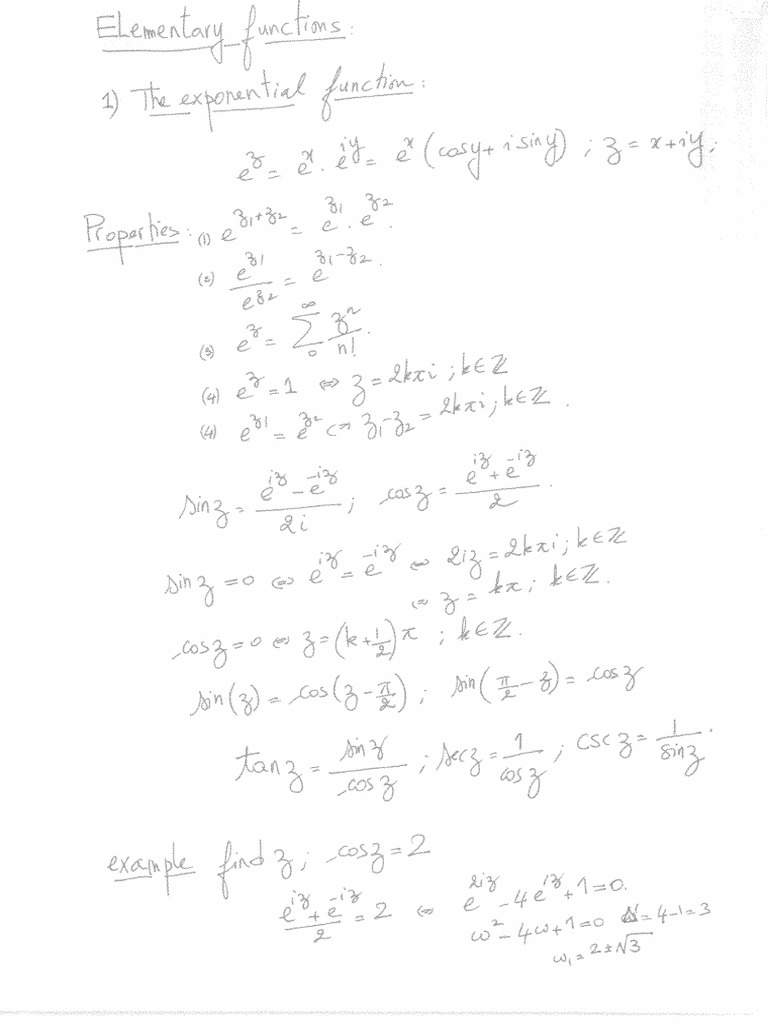 Elementary functions:
1) The exponential function:
e^z = e^x . e^{iy} = e^x (cosy + i siny) ; z = x + iy;
Properties: (1) e^{z1+z2} = e^{z1} . e^{z2}.
(2) e^{z1}/e^{z2} = e^{z1-z2}.
(3) e^z = ∑_0^∞ z^n/n!.
(4) e^z = 1 ⇔ z = 2kπi ; k∈ℤ
(4) e^{z1} = e^{z2} ⇔ z1-z2 = 2kπi ; k∈ℤ.
sin z = (e^{iz} - e^{-iz})/2i ; cos z = (e^{iz} + e^{-iz})/2.
sin z = 0 ⇔ e^{iz} = e^{-iz} ⇔ 2iz = 2kπi ; k∈ℤ
⇔ z = kπ ; k∈ℤ.
cos z = 0 ⇔ z = (k + 1/2)π ; k∈ℤ.
sin(z) = cos(z - π/2) ; sin(π/2 - z) = cos z
tan z = sin z/cos z ; sec z = 1/cos z ; csc z = 1/sin z.
example find z ; cos z = 2
(e^{iz} + e^{-iz})/2 = 2 ⇔ e^{2iz} - 4e^{iz} + 1 = 0.
ω^2 - 4ω + 1 = 0 Δ' = 4-1 = 3
ω1 = 2 ± √3